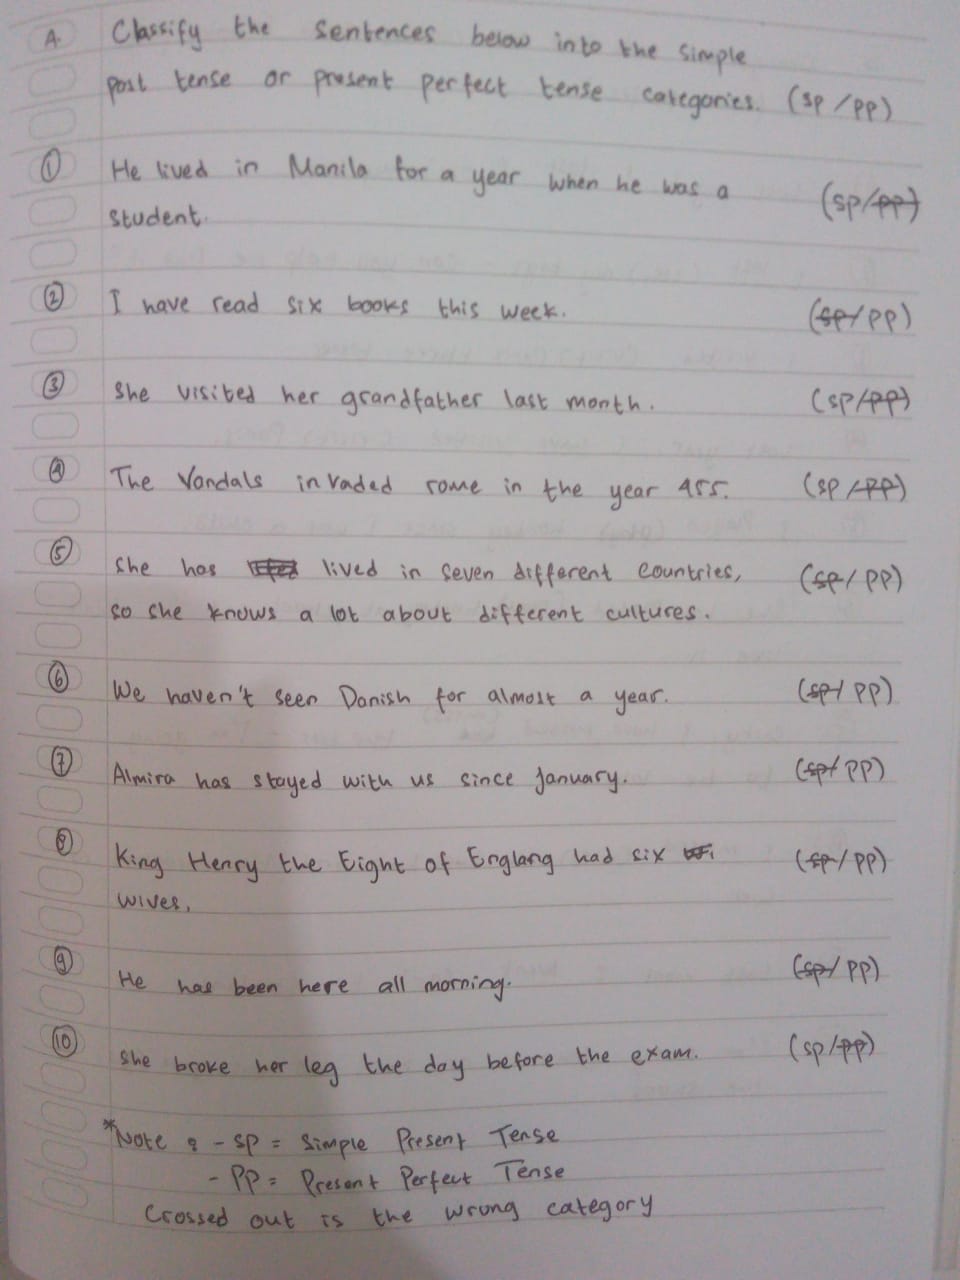 A. Classify the sentences below into the simple
past tense or present perfect tense categories. (sp/pp)
① He lived in Manila for a year when he was a (sp/pp)
student.
② I have read six books this week. (sp/pp)
③ She visited her grandfather last month. (sp/pp)
④ The Vandals invaded rome in the year 455. (sp/pp)
⑤ She has lived in seven different countries, (sp/pp)
so she knows a lot about different cultures.
⑥ We haven't seen Danish for almost a year. (sp/pp)
⑦ Almira has stayed with us since january. (sp/pp)
⑧ King Henry the Eight of Englang had six (sp/pp)
wives.
⑨ He has been here all morning. (sp/pp)
⑩ She broke her leg the day before the exam. (sp/pp)
*Note : - sp = Simple Present Tense
- PP = Present Perfect Tense
Crossed out is the wrong category